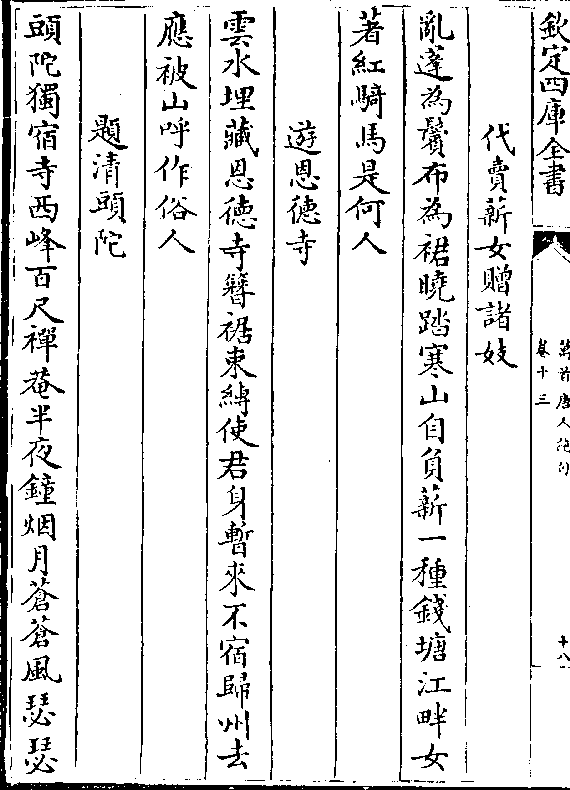 欽定四庫全書
萬首唐人絕句
卷十三
十八
代賣薪女贈諸妓
亂蓬為鬢布為裙曉踏寒山自負薪一種錢塘江畔女
著紅騎馬是何人
遊恩德寺
雲水埋藏恩德寺簪裾束縛使君身暫來不宿歸州去
應被山呼作俗人
題清頭陀
頭陀獨宿寺西峰百尺禪菴半夜鐘烟月蒼蒼風瑟瑟